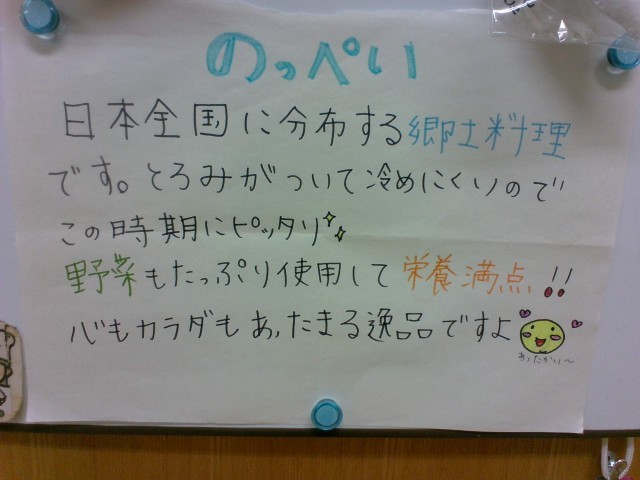 のっぺい
日本全国に分布する郷土料理
です。とろみがついて冷めにくいので
この時期にピッタリ
野菜もたっぷり使用して栄養満点!!
心もカラダもあったまる逸品ですよ
あったかい〜